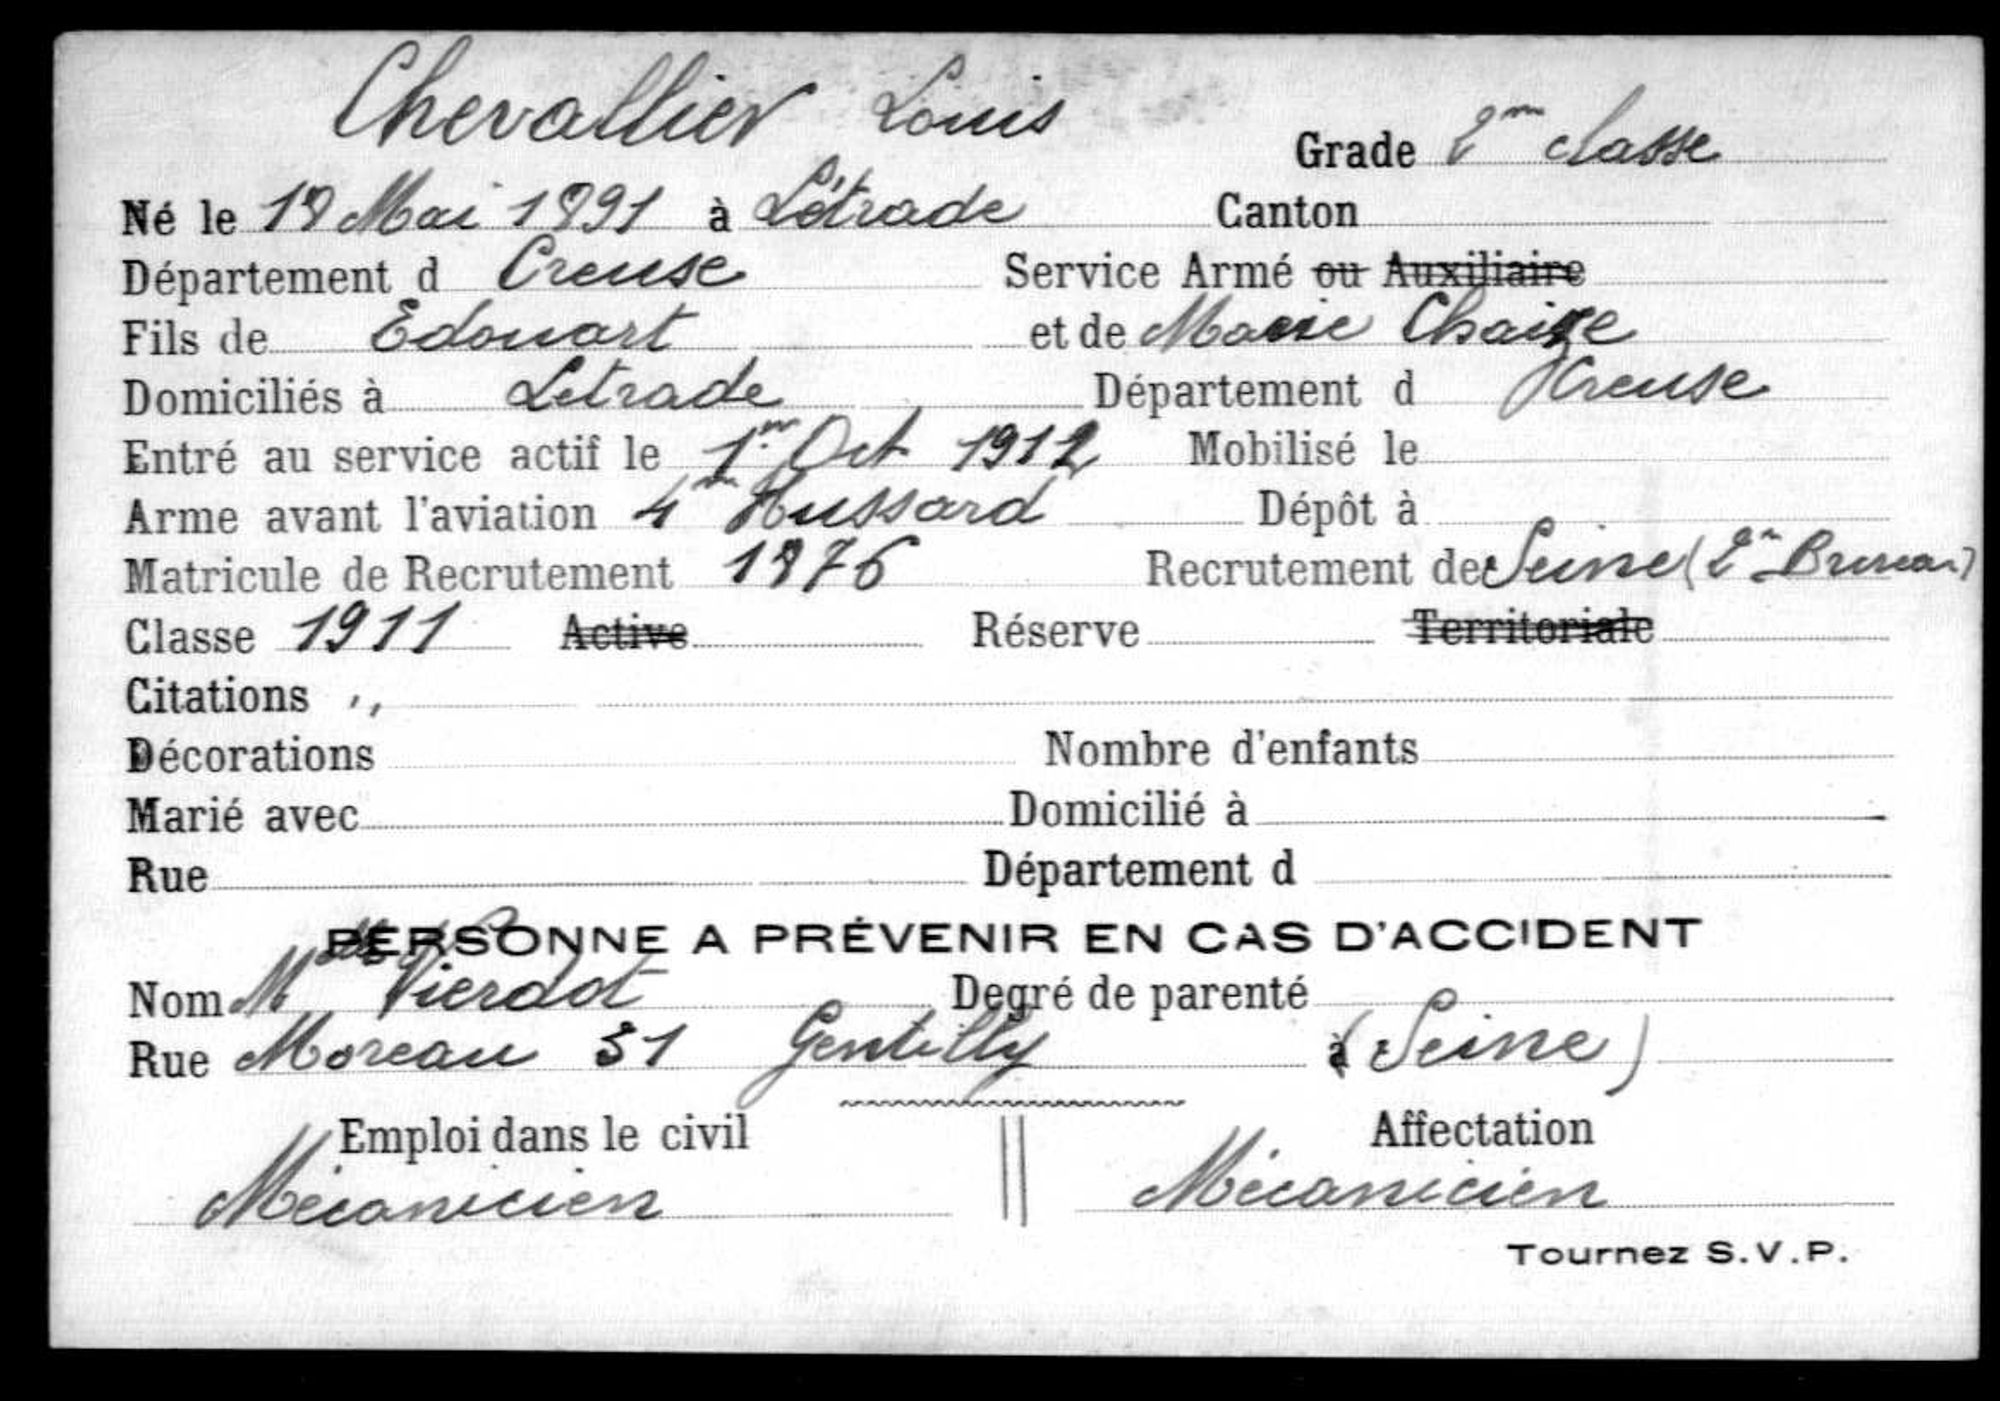 Chevallier Louis
Grade 2me classe
Né le 18 Mai 1891 à Létrade Canton
Département d Creuse Service Armé ou Auxiliaire
Fils de Edouart et de Marie Chaize
Domiciliés à Letrade Département d Creuse
Entré au service actif le 1er Oct 1912 Mobilisé le
Arme avant l'aviation 4me Hussard Dépôt à
Matricule de Recrutement 1876 Recrutement de Seine (2me Bureau)
Classe 1911 Active Réserve Territoriale
Citations ,,
Décorations Nombre d'enfants
Marié avec Domicilié à
Rue Département d
PERSONNE A PRÉVENIR EN CAS D'ACCIDENT
Nom Vierdot Degré de parenté
Rue Moreau 31 Gentilly à (Seine)
Emploi dans le civil Affectation
Mécanicien Mécanicien
Tournez S.V.P.